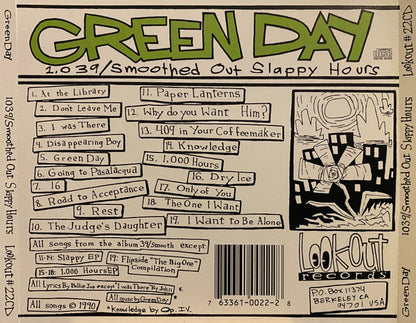 GREEN DAY
1,039/Smoothed Out Slappy Hours
1. At the Library
2. Dont Leave Me
3. I was There
4. Disappearing Boy
5. Green Day
6. Going to Pasalacqua
7. 16
8. Road to Acceptance
9. Rest
10. The Judge's Daughter
11. Paper Lanterns
12. Why do you Want Him?
13. 409 in Your Coffeemaker
14. Knowledge
15. 1,000 Hours
16. Dry Ice
17. Only of You
18. The One I Want
19. I Want to Be Alone
All songs from the album 39/Smooth except:
11-14: Slappy EP
15-18: 1,000 Hours EP
19: Flipside "The Big One" Compilation
All Lyrics By Billie Joe except "I was There" By John
All music by Green Day*
All songs © 1990
*Knowledge by Op. IV.
7 63361-0022-2 8
LookOut
records
P.O. Box 11374
BERKELEY CA
94701 USA
Green Day
1,039/Smoothed Out Slappy Hours
Lookout #22CD
Green Day
1,039/Smoothed Out Slappy Hours
Lookout #22CD